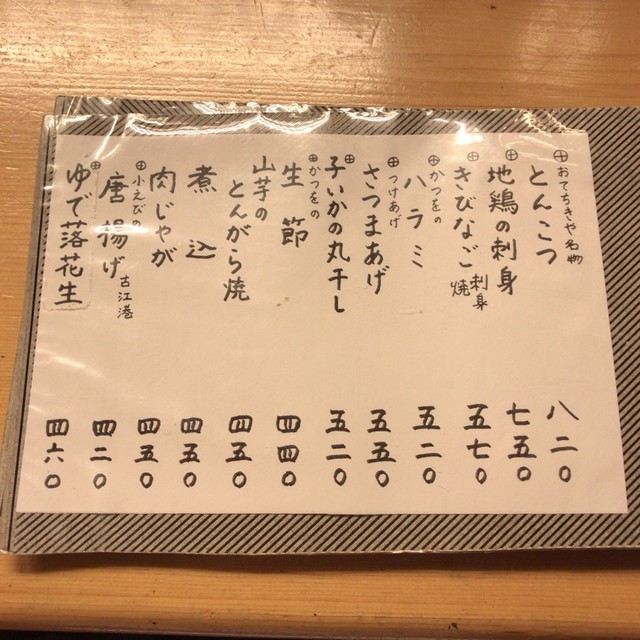 ⊕おてちきや名物
とんこつ 八二〇
⊕地鶏の刺身 七五〇
⊕きびなご 刺身 焼 五七〇
⊕かつをの
ハラミ 五二〇
⊕つけあげ
さつまあげ 五五〇
⊕子いかの丸干し 五二〇
⊕かつをの
生節 四四〇
山芋の
とんがら焼 四五〇
煮込 四五〇
肉じゃが 四五〇
⊕小えびの
唐揚げ 古江港 四二〇
⊕ゆで落花生 四六〇